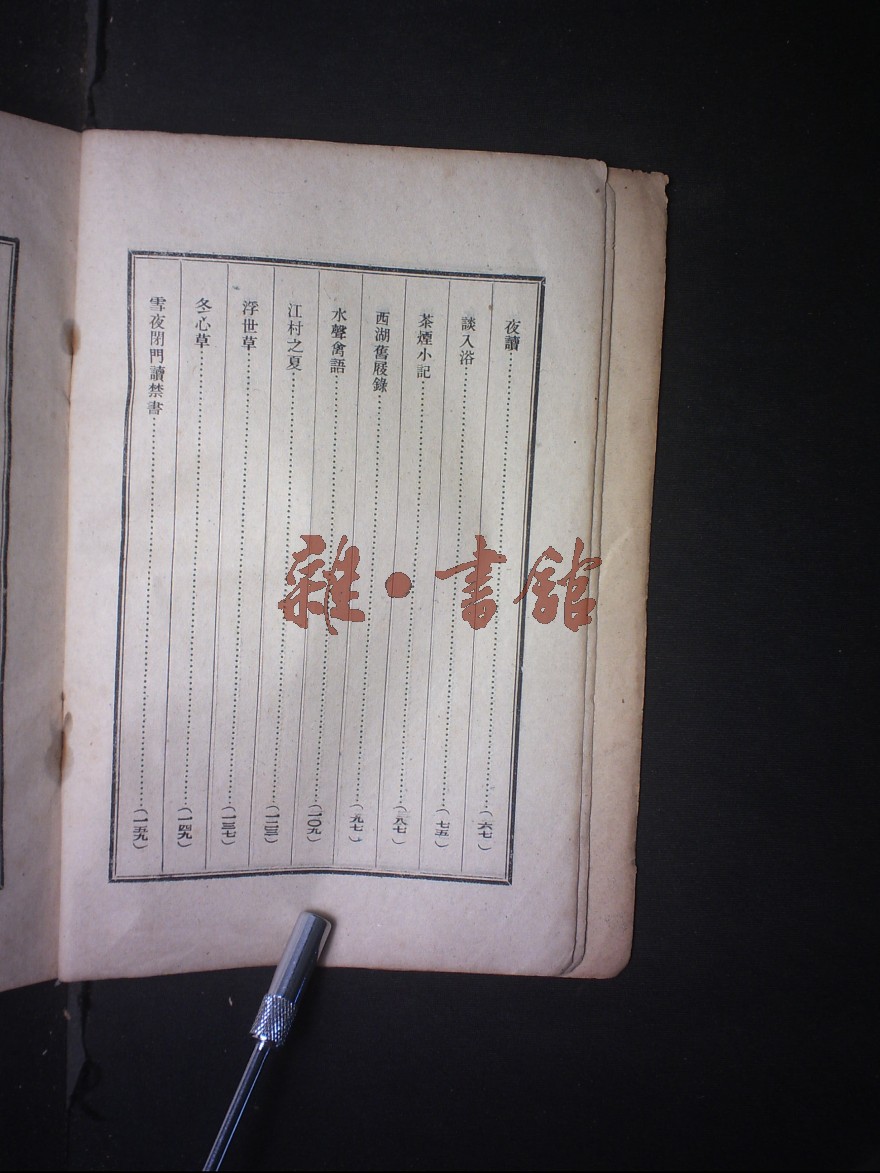 夜讀……(六七)
談入浴……(七五)
茶煙小記……(八七)
西湖舊屐錄……(九七)
水聲禽語……(一〇九)
江村之夏……(一二三)
浮世草……(一三七)
冬心草……(一四九)
雪夜閉門讀禁書……(一五九)
雜·書館